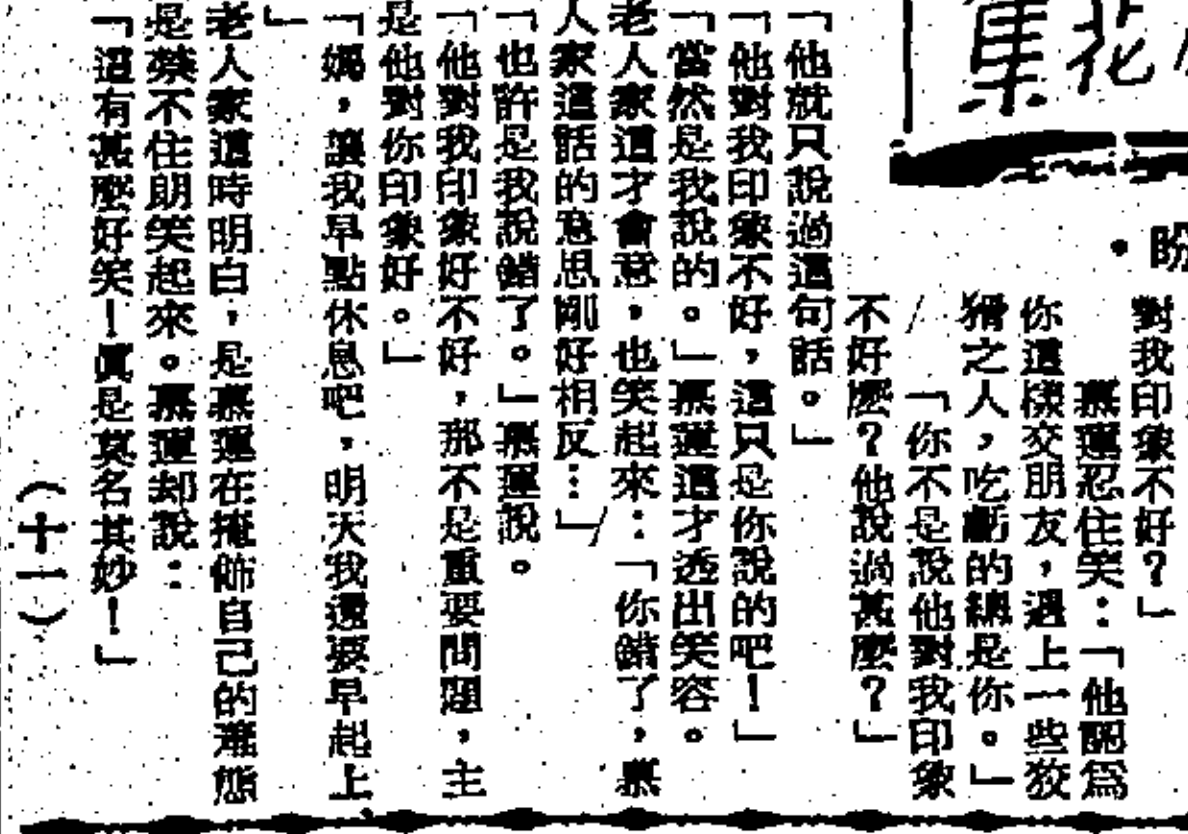 集花
盼
・
對我印象不好?」
慕蓮忍住笑:「他認爲
你這樣交朋友,遇上一些狡
猾之人,吃虧的總是你。」
「你不是說他對我印象
不好麼?他說過甚麼?」
「他就只說過這句話。」
「他對我印象不好,這只是你說的吧!」
「當然是我說的。」慕蓮這才透出笑容。
老人家這才會意,也笑起來:「你錯了,慕
人家這話的意思剛好相反…」
「也許是我說錯了。」慕蓮說。
「他對我印象好不好,那不是重要問題,主
是他對你印象好。」
「媽,讓我早點休息吧,明天我還要早起上
」
老人家這時明白,是慕蓮在掩飾自己的羞態
是禁不住朗笑起來。慕蓮却說:
「這有甚麼好笑!眞是莫名其妙!」
(十一)